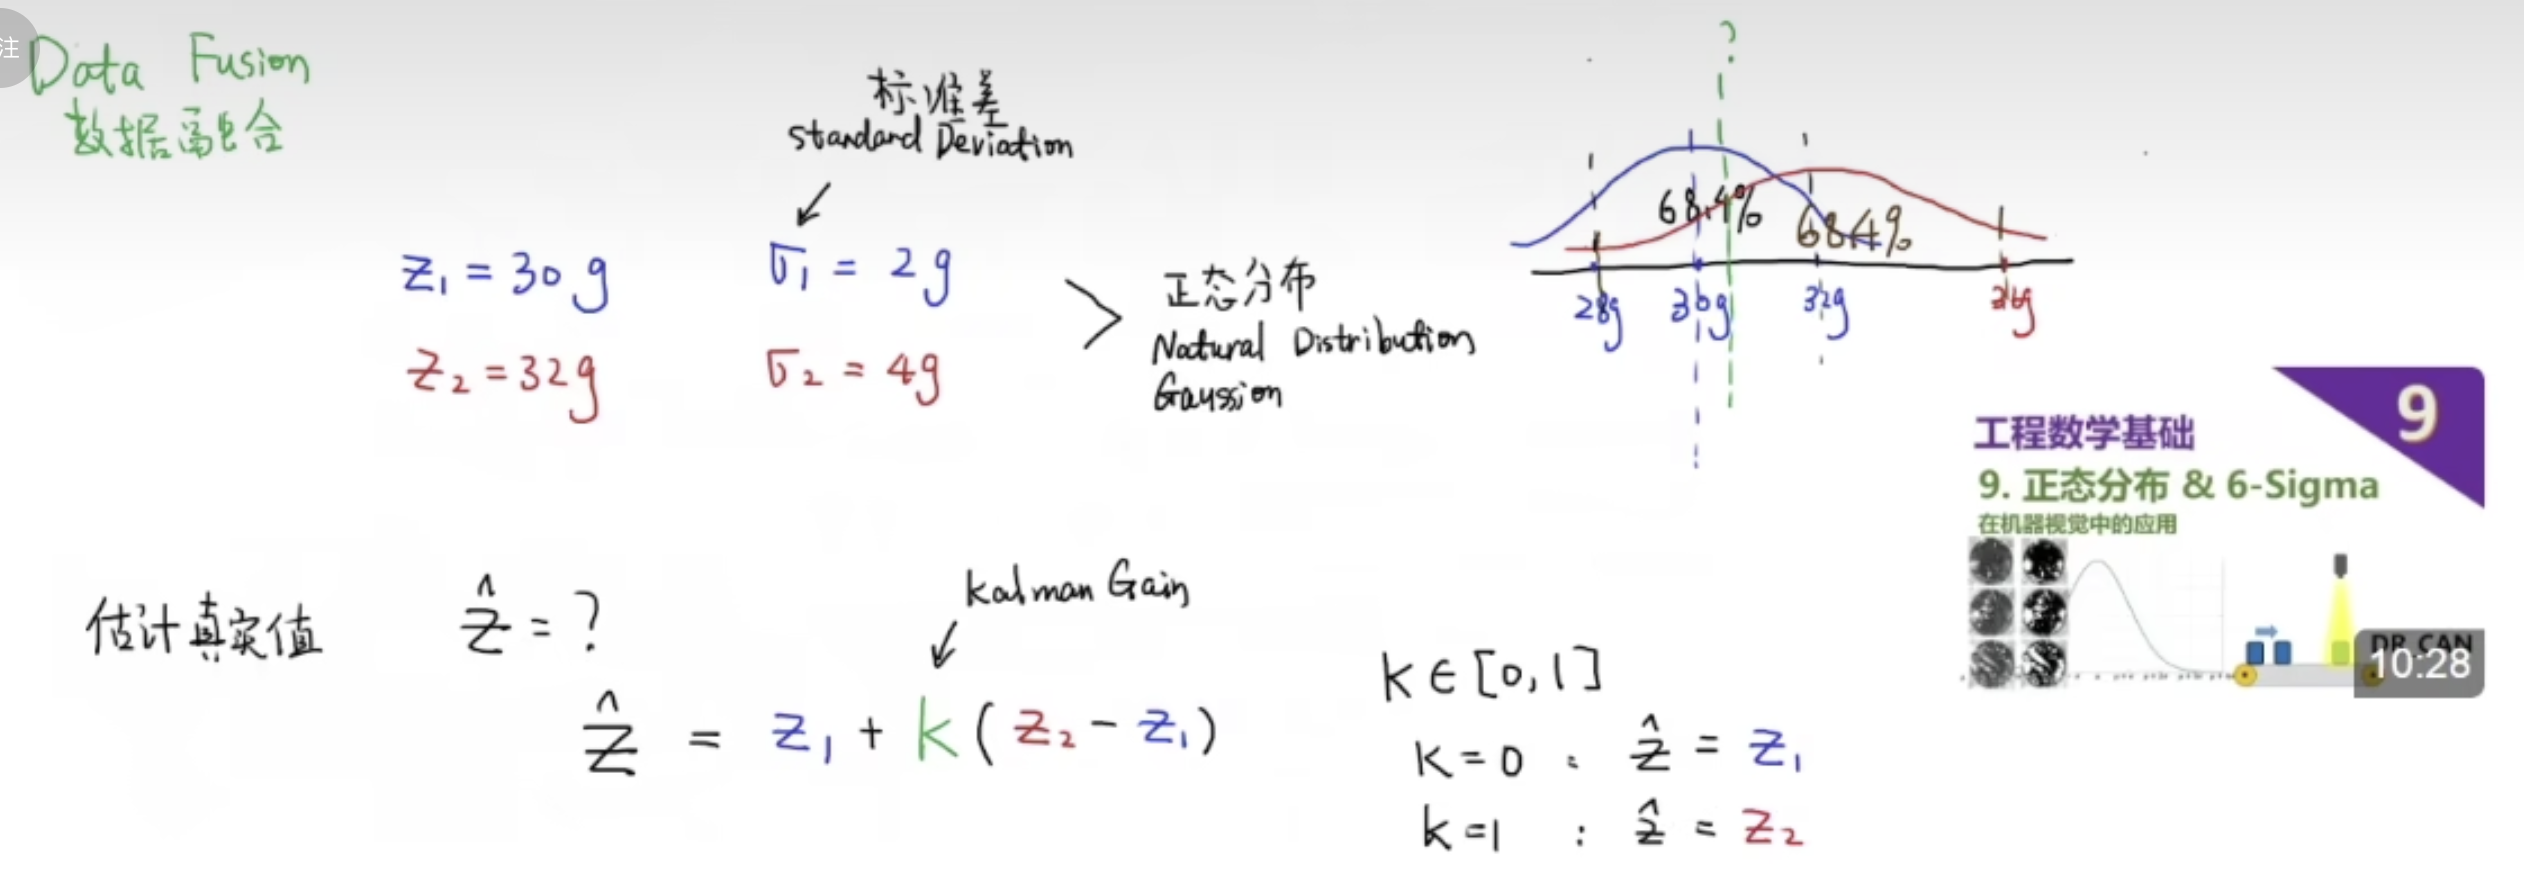 注
Data Fusion
数据融合
标准差
Standard Deviation
z₁ = 30g
σ₁ = 2g
z₂ = 32g
σ₂ = 4g
正态分布
Natural Distribution
Gaussion
?
68.4%
68.4%
28g 30g 32g 36g
9
工程数学基础
9. 正态分布 & 6-Sigma
在机器视觉中的应用
DR_CAN
10:28
估计真实值 ẑ = ?
Kalman Gain
ẑ = z₁ + k(z₂ - z₁)
k ∈ [0,1]
k = 0 : ẑ = z₁
k = 1 : ẑ = z₂